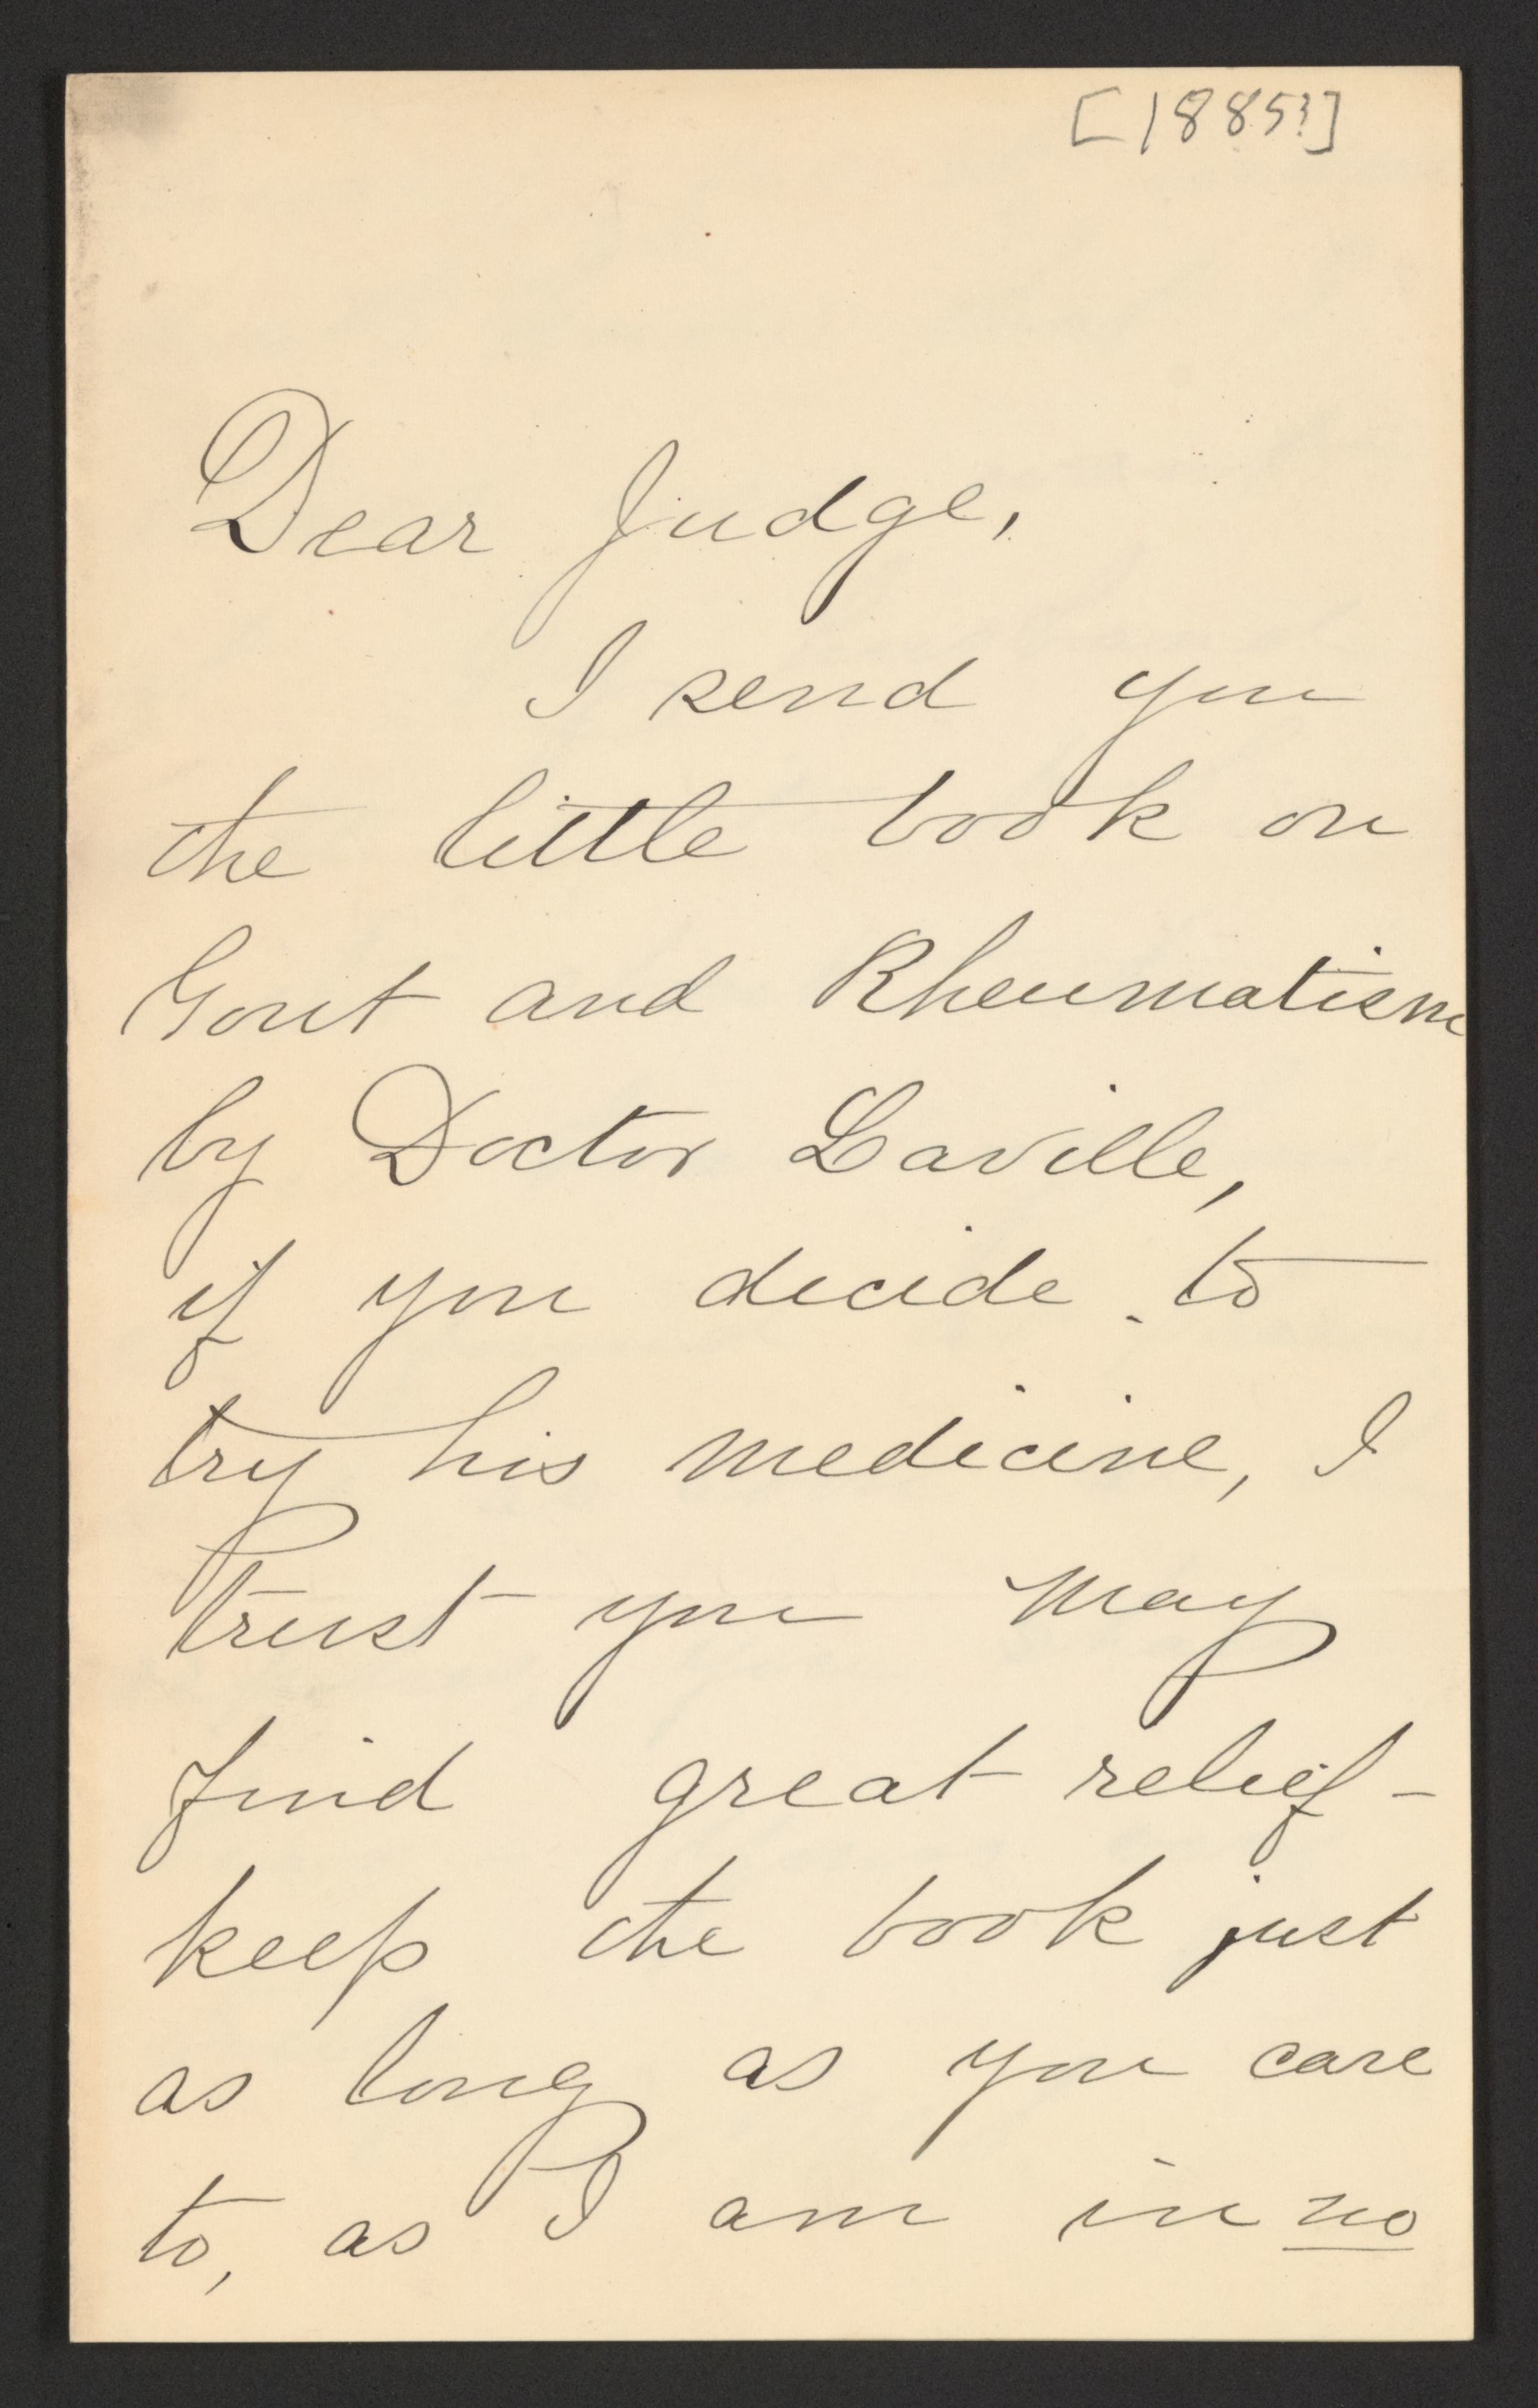 [1885?]
Dear Judge,
I send you
the little book on
Gout and Rheumatism
by Doctor Laville,
if you decide to
try his medicine, I
trust you may
find great relief -
keep the book just
as long as you care
to, as I am in no